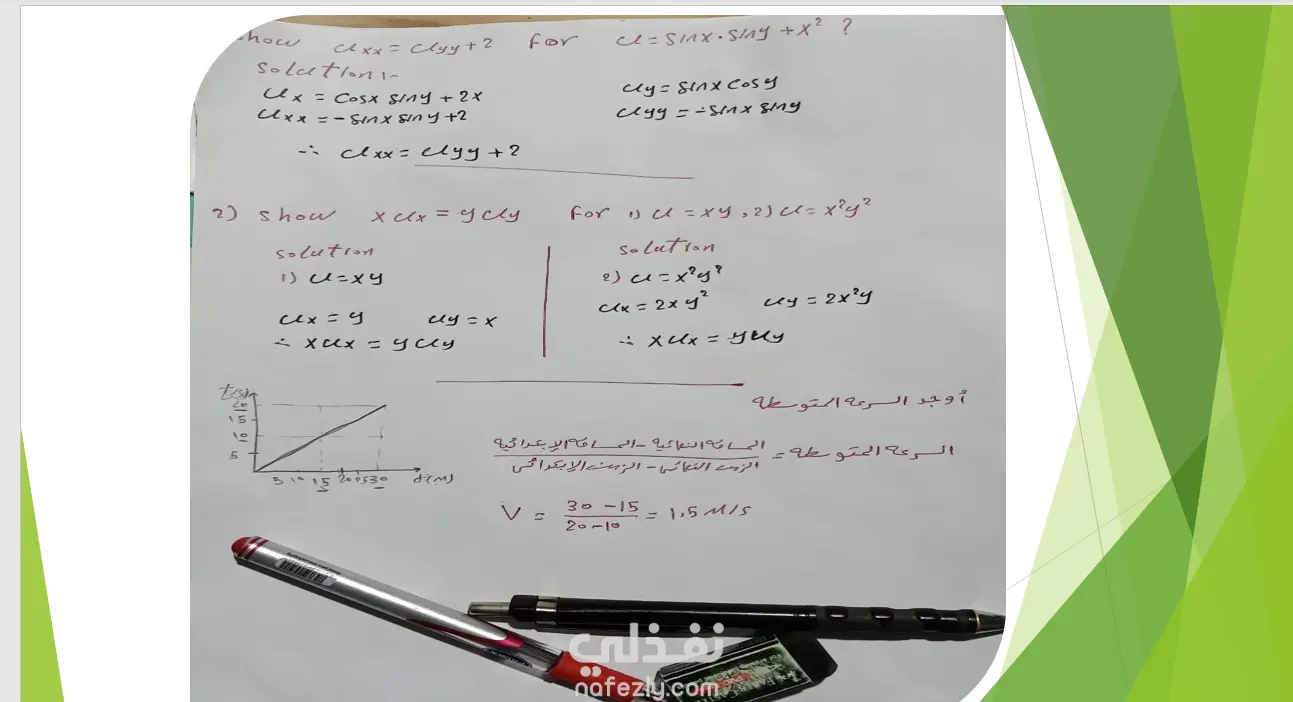 show uxx = uyy + 2 for u = sinx · siny + x² ?
solution:-
ux = cosx siny + 2x uy = sinx cosy
uxx = -sinx siny + 2 uyy = -sinx siny
∴ uxx = uyy + 2
2) show x ux = y uy for 1) u = xy , 2) u = x²y²
solution
1) u = xy
ux = y uy = x
∴ xux = y uy
solution
2) u = x²y²
ux = 2xy² uy = 2x²y
∴ xux = yuy
t(s)
20
15
10
5
5 10 15 20 25 30 d(M)
أوجد السرعة المتوسطة
السرعة المتوسطة = المسافة النهائية - المسافة الإبتدائية
الزمن النهائي - الزمن الإبتدائي
V = 30 - 15 / 20 - 10 = 1,5 M/s
نفذلي
nafezly.com